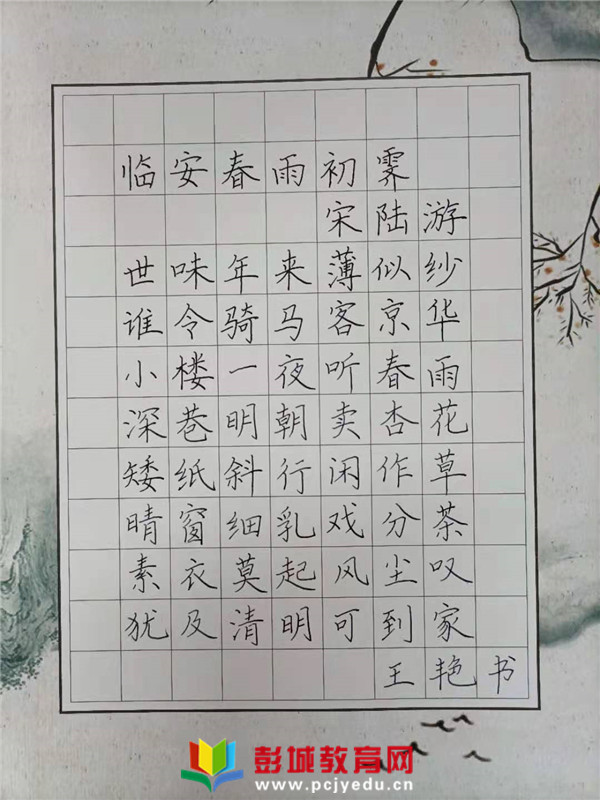 临安春雨初霁
宋陆游
世味年来薄似纱
谁令骑马客京华
小楼一夜听春雨
深巷明朝卖杏花
矮纸斜行闲作草
晴窗细乳戏分茶
素衣莫起风尘叹
犹及清明可到家
王艳书
彭城教育网
www.pcjyedu.cn